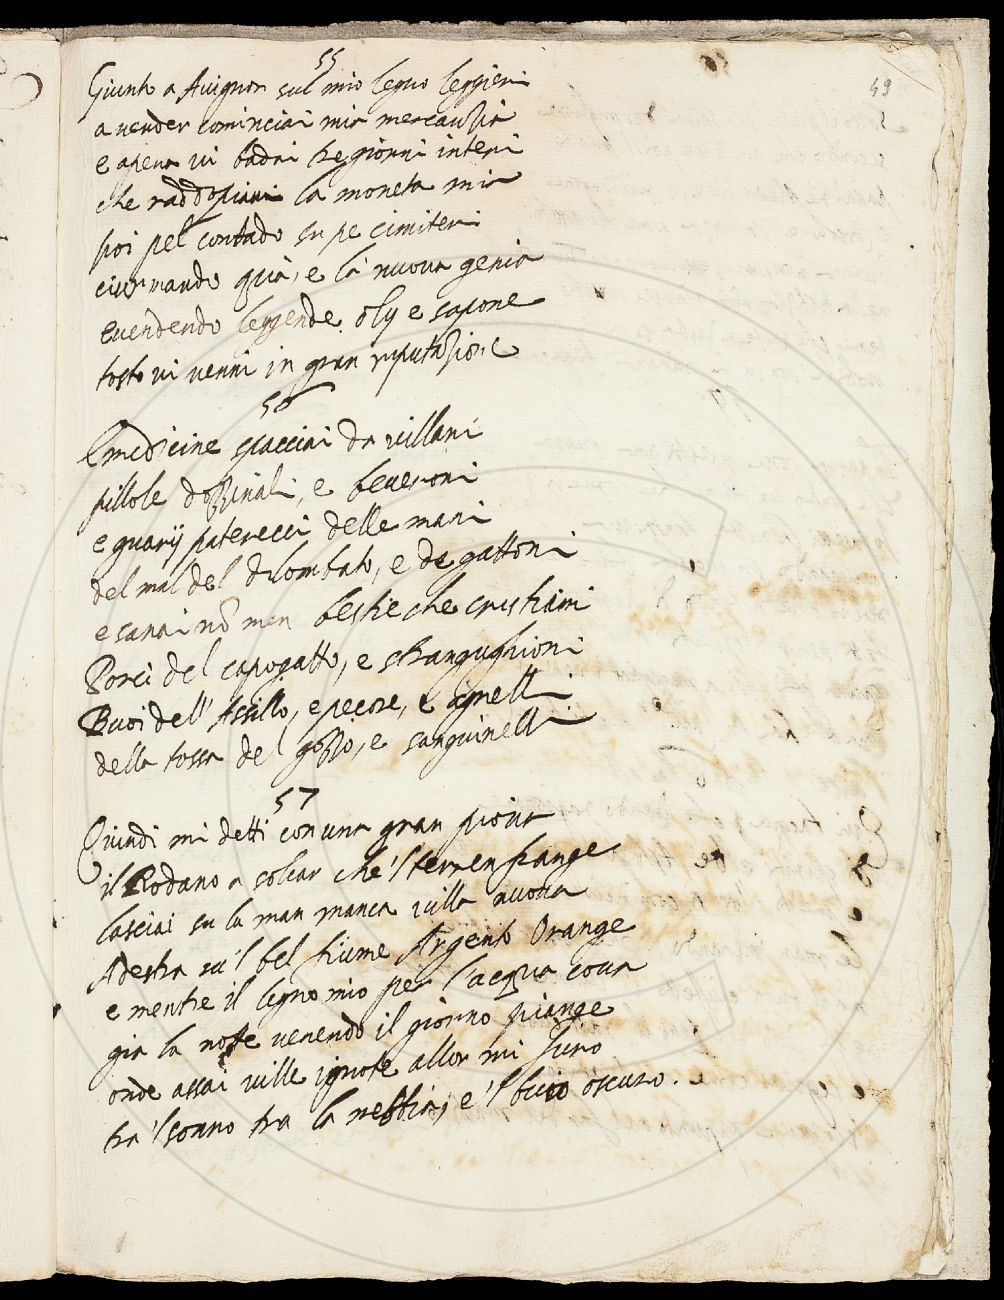 49
55
Giunto a Avignon sul mio legno leggieri
a vender cominciai mia mercanzia
e apena vi badai tre giorni interi
che raddopiai la moneta mia
poi pel contado su pe cimiteri
ciurmando quà, e là nuova genia
e vendendo leggende olij e sapone
tosto vi venni in gran riputazione
56
E medicine spacciai da villani
pillole dozzinali, e beveroni
e guarij paterecci delle mani
del mal del dilombato, e de gattoni
e sanai nõ men bestie che cristiani
Porci del capogatto, e stranguglioni
Buoi dell'Assillo, e pecore, e agnelli
della tossa del gozzo, e sanguinelli
57
Quindi mi detti con una gran piova
il Rodano a solcar che'l terren frange
lasciai su la man manca villa nuova
A destra su'l bel fiume Argento Orange
e mentre il legno mio per l'acqua cova
gia la notte venendo il giorno piange
onde assai ville ignote allor mi furo
tra'l sonno tra la nebbia, e'l buio oscuro.